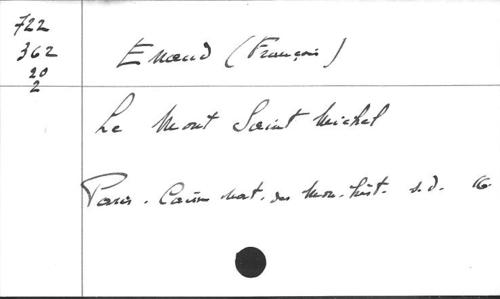 722
362
20
2
Enaud (François)
Le Mont Saint Michel
Paris. Caisse nat. des Mon. hist. s.d. 16